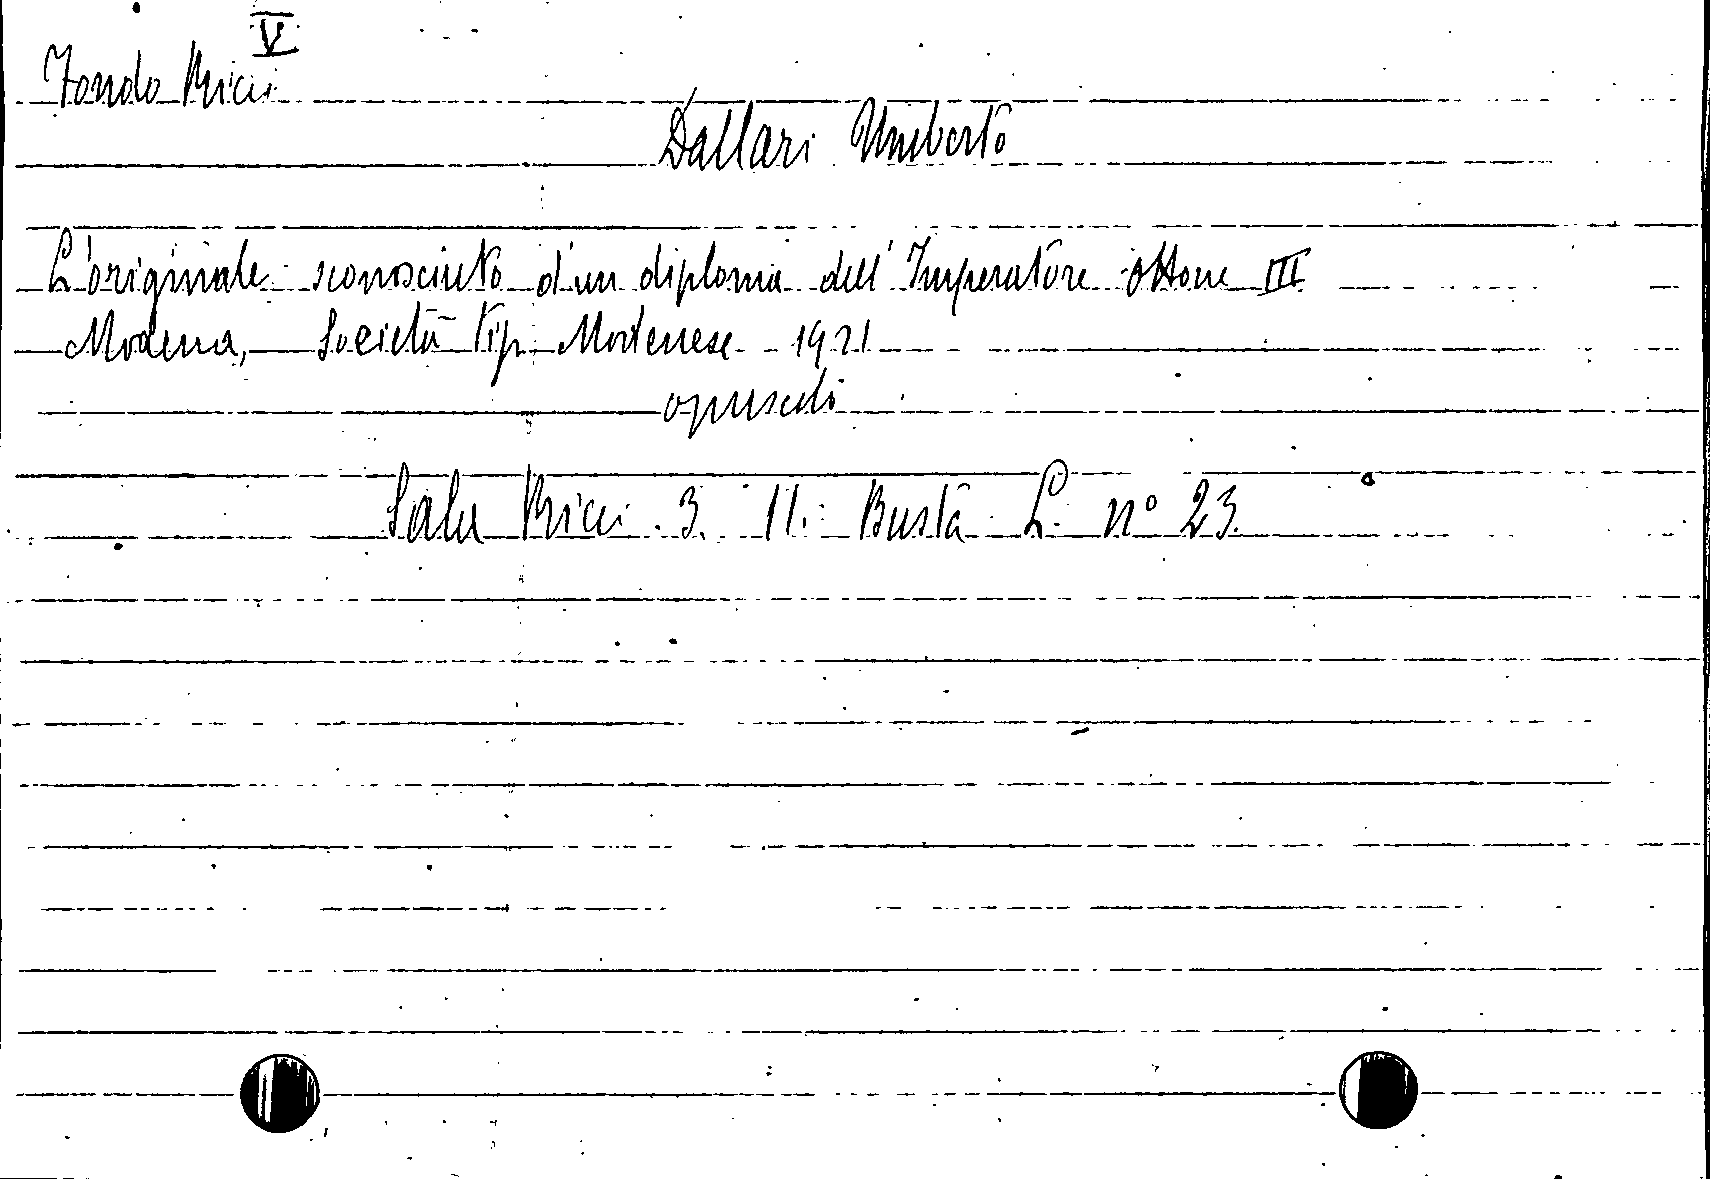 V
Fondo Ricci
Dallari Umberto
L'originale sconosciuto d'un diploma dell'Imperatore Ottone III
Modena, Società Tip. Modenese 1921
opuscoli
Sala Ricci. 3. 11. Busta L. n° 23.